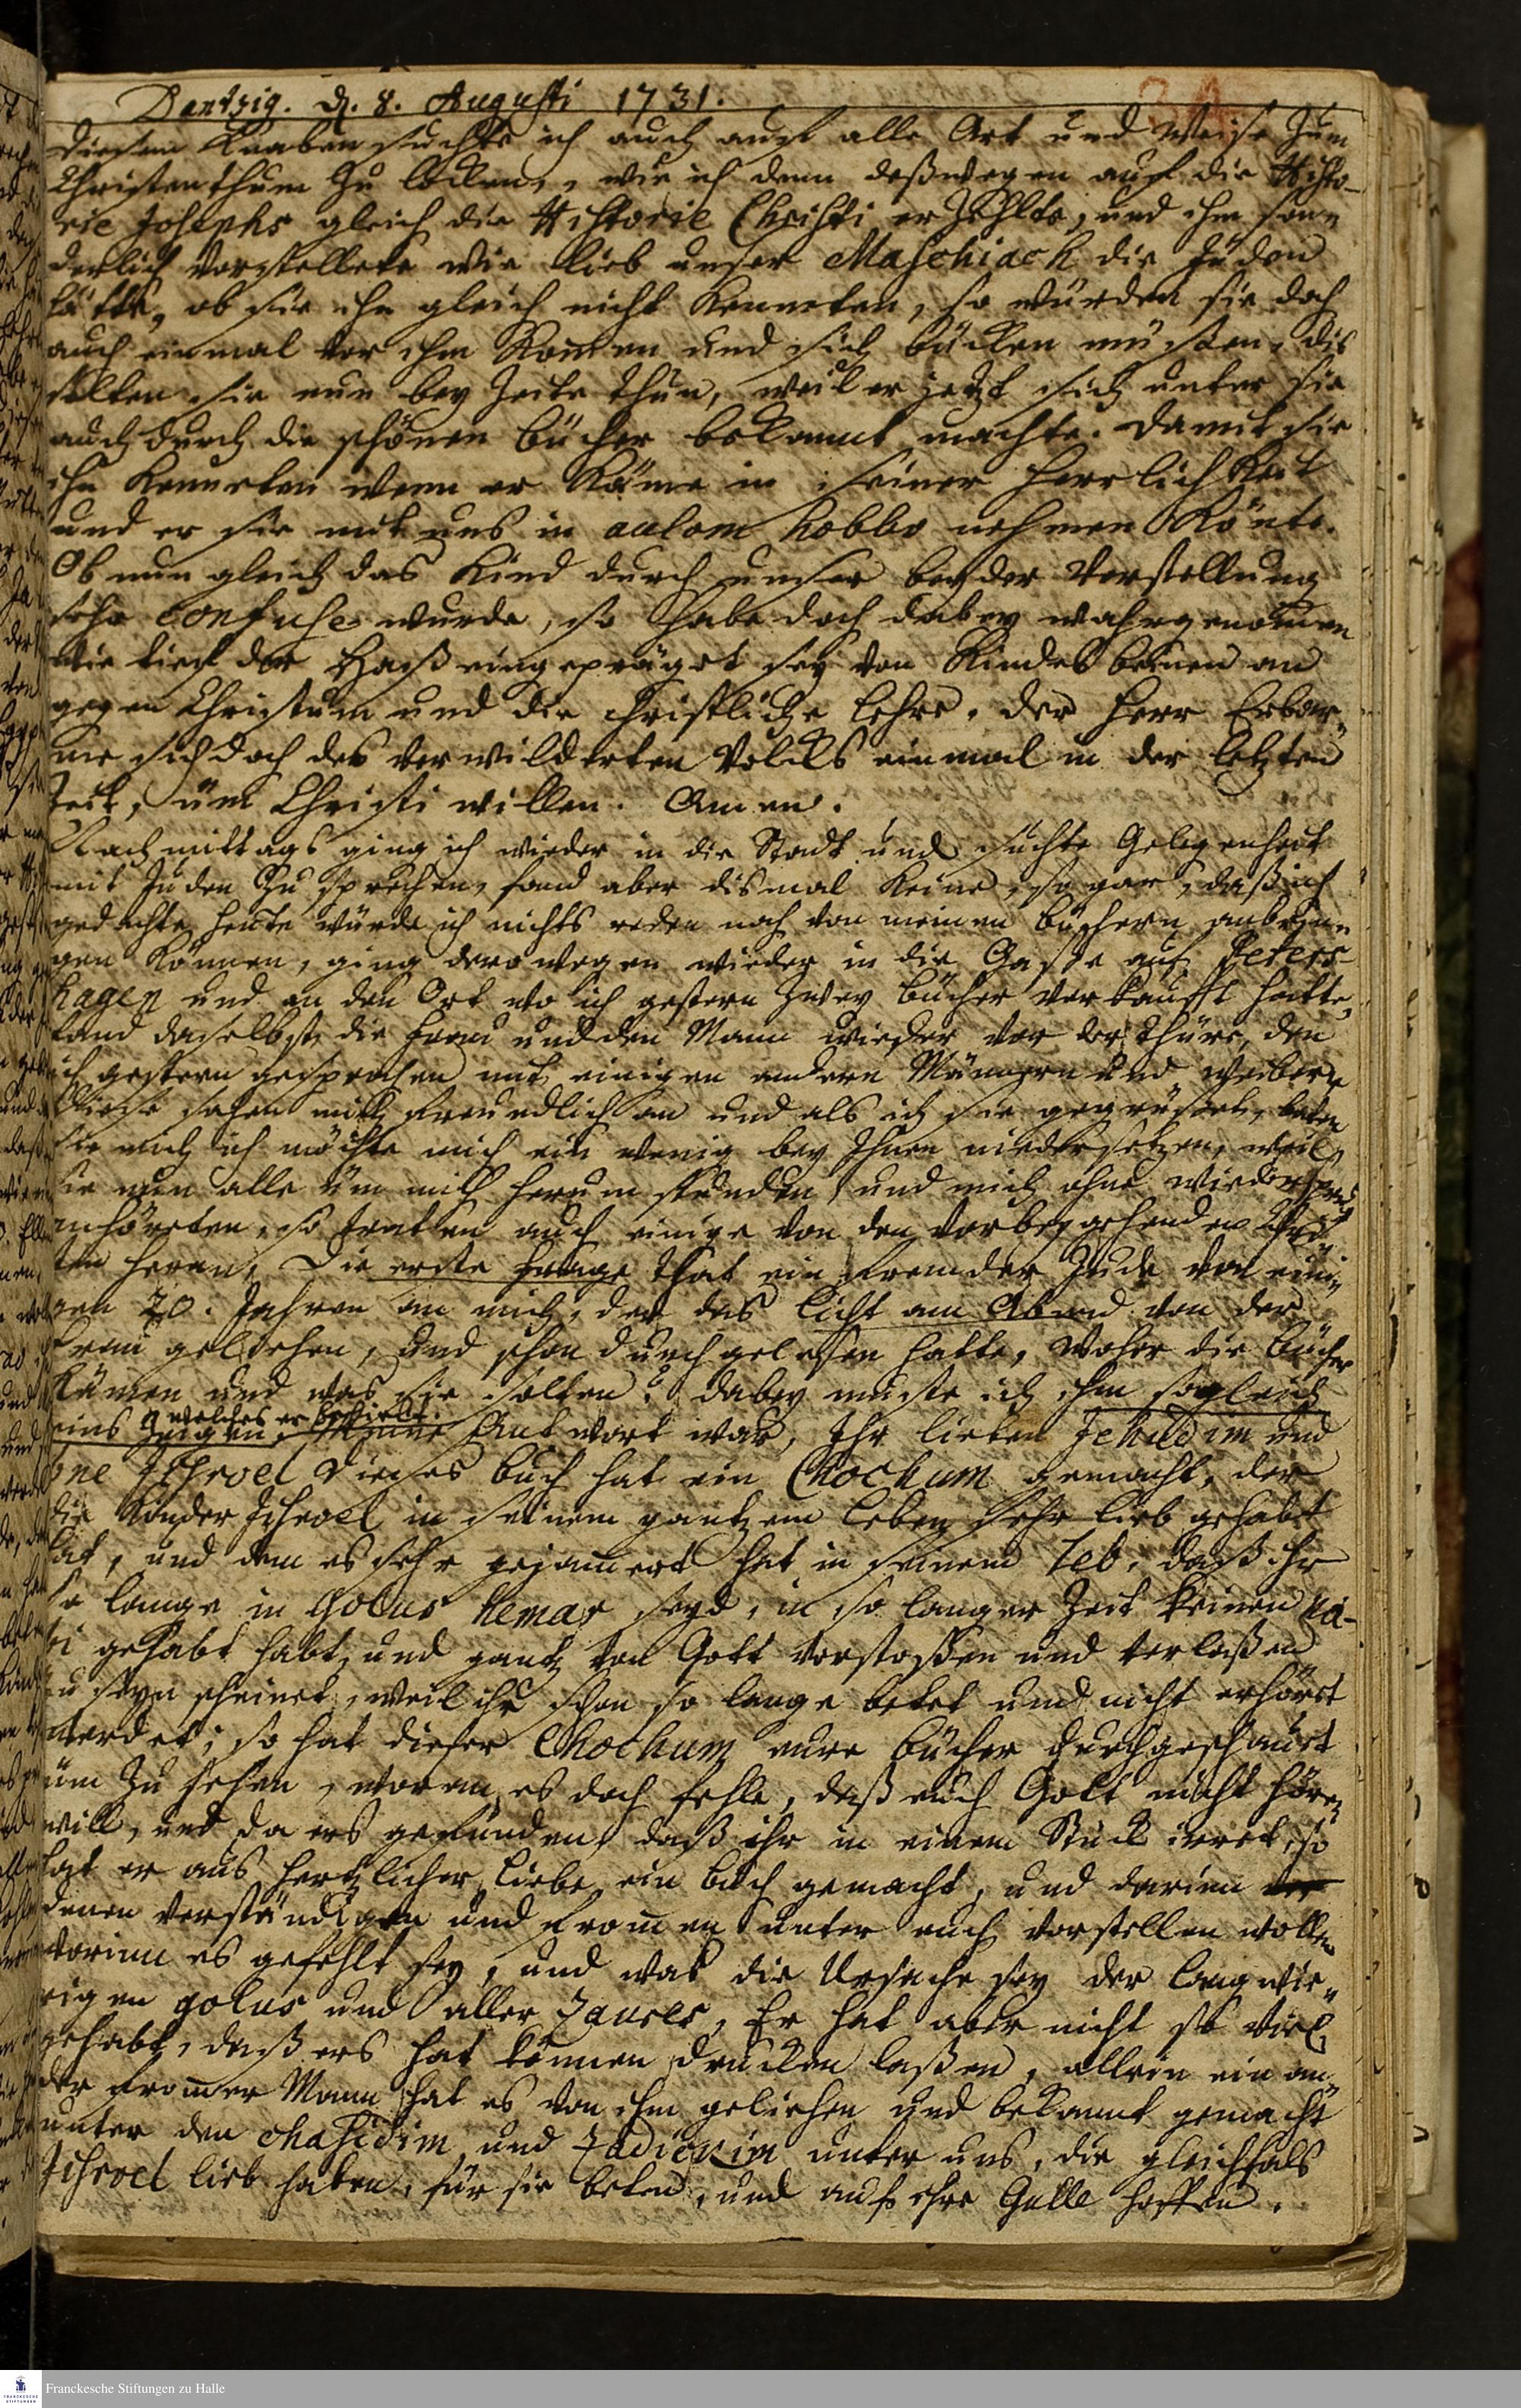 Dantzig. d. 8. Augusti 1731.
Diesen Knaben suchte ich auch auf alle Art und Weise zum
Christenthum zu locken, wie ich denn deßwegen auf die Histo-
rie Josephs gleich die Historie Christi erzehlte, und ihm son-
derlich vorstellete wie lieb unser Maschiach die Juden
hätte, ob sie ihn gleich nicht kenneten, so würden sie doch
auch einmal vor ihm kommen und sich bücken müssen, dis
solten sie nun bey Zeite thun, weil er jetzt sich unter sie
auch durch die schönen Bücher bekannt machte. Damit sie
ihn kenneten wenn er käme in seiner Herrlichkeit
und er sie mit uns in aulom habbo nehmen könte.
Ob nun gleich das Kind durch unser beyder Vorstellung
sehr confuse wurde, so habe doch dabey wahrgenommen
wie tief der Haß eingepräget sey von Kindesbeinen an
gegen Christum und die christliche Lehre. Der Herr Erbar-
me sich doch des verwilderten Volcks einmal in der letzten
Zeit, üm Christi willen. Amen.
Nachmittags ging ich wieder in die Stadt und suchte Gelegenheit
mit Juden zu sprechen, fand aber dismal keine, so gar, daß ich
gedachte heute würde ich nichts reden noch von meinen Büchern anbrin-
gen können, ging derowegen wieder in die Gasse auf Peters-
hagen und an den Ort wo ich gestern zwey Bücher verkaufft hatte,
fand daselbst die Frau und den Mann wieder vor der Thüre, den
ich gestern gesprochen mit einigen andern Männern und Weibern
Diese sahen mich freundlich an und als ich sie gegrüsset, baten
sie mich ich möchte mich ein wenig bey Ihnen niedersetzen, weil
sie nun alle üm mich herum stunden und mich ohne Wiederspruch
anhöreten, so traten auch einige von den vorbeygehenden Chri-
sten heran, Die erste Frage that ein fremder Jude von eini-
gen 20. Jahren an mich, der das Licht am Abend von der
Frau geliehen, und schon durchgelesen hatte, woher die Bücher
kämen und was sie solten? dabey muste ich ihm sogleich
welches er behielt.
eins zeigen, Meine Antwort war, Ihr lieben Jehudim und
bne Jisroel Dieses Buch hat ein Chochum gemacht, der
die Kinder Jisroel in seinem gantzen Leben sehr lieb gehabt
hat, und dem es sehr gejamert hat in seinem Leb, daß ihr
so lange in Golus hemar seyd, in so langer Zeit keinen na-
fi gehabt habt, und gantz von Gott verstoßen und verlaßen
zu seyn scheinet, weil ihr schon so lange betet und nicht erhöret
werdet; so hat dieser Chochum eure Bücher durchgeschauet
üm zu sehen, woran es doch fehle, daß euch Gott nicht hören
will, und da ers gefunden, daß ihr in einem Stück irret, so
hat er aus hertzlicher Liebe ein Buch gemacht, und darinn
denen verständigen und fromen unter euch vorstellen wollen
worinn es gefehlt sey, und was die Ursache sey der langwie-
rigen golus und aller zaures, Er hat aber nicht so viel
gehabt, daß ers hat können drucken laßen, allein ein an-
der fromer Mann hat es von ihm geliehen und bekannt gemacht
unter den chasidim und zadickim unter uns, die gleichfals
Jisroel lieb haben, für sie beten, und auf ihre Gulle hoffen.
Franckesche Stiftungen zu Halle